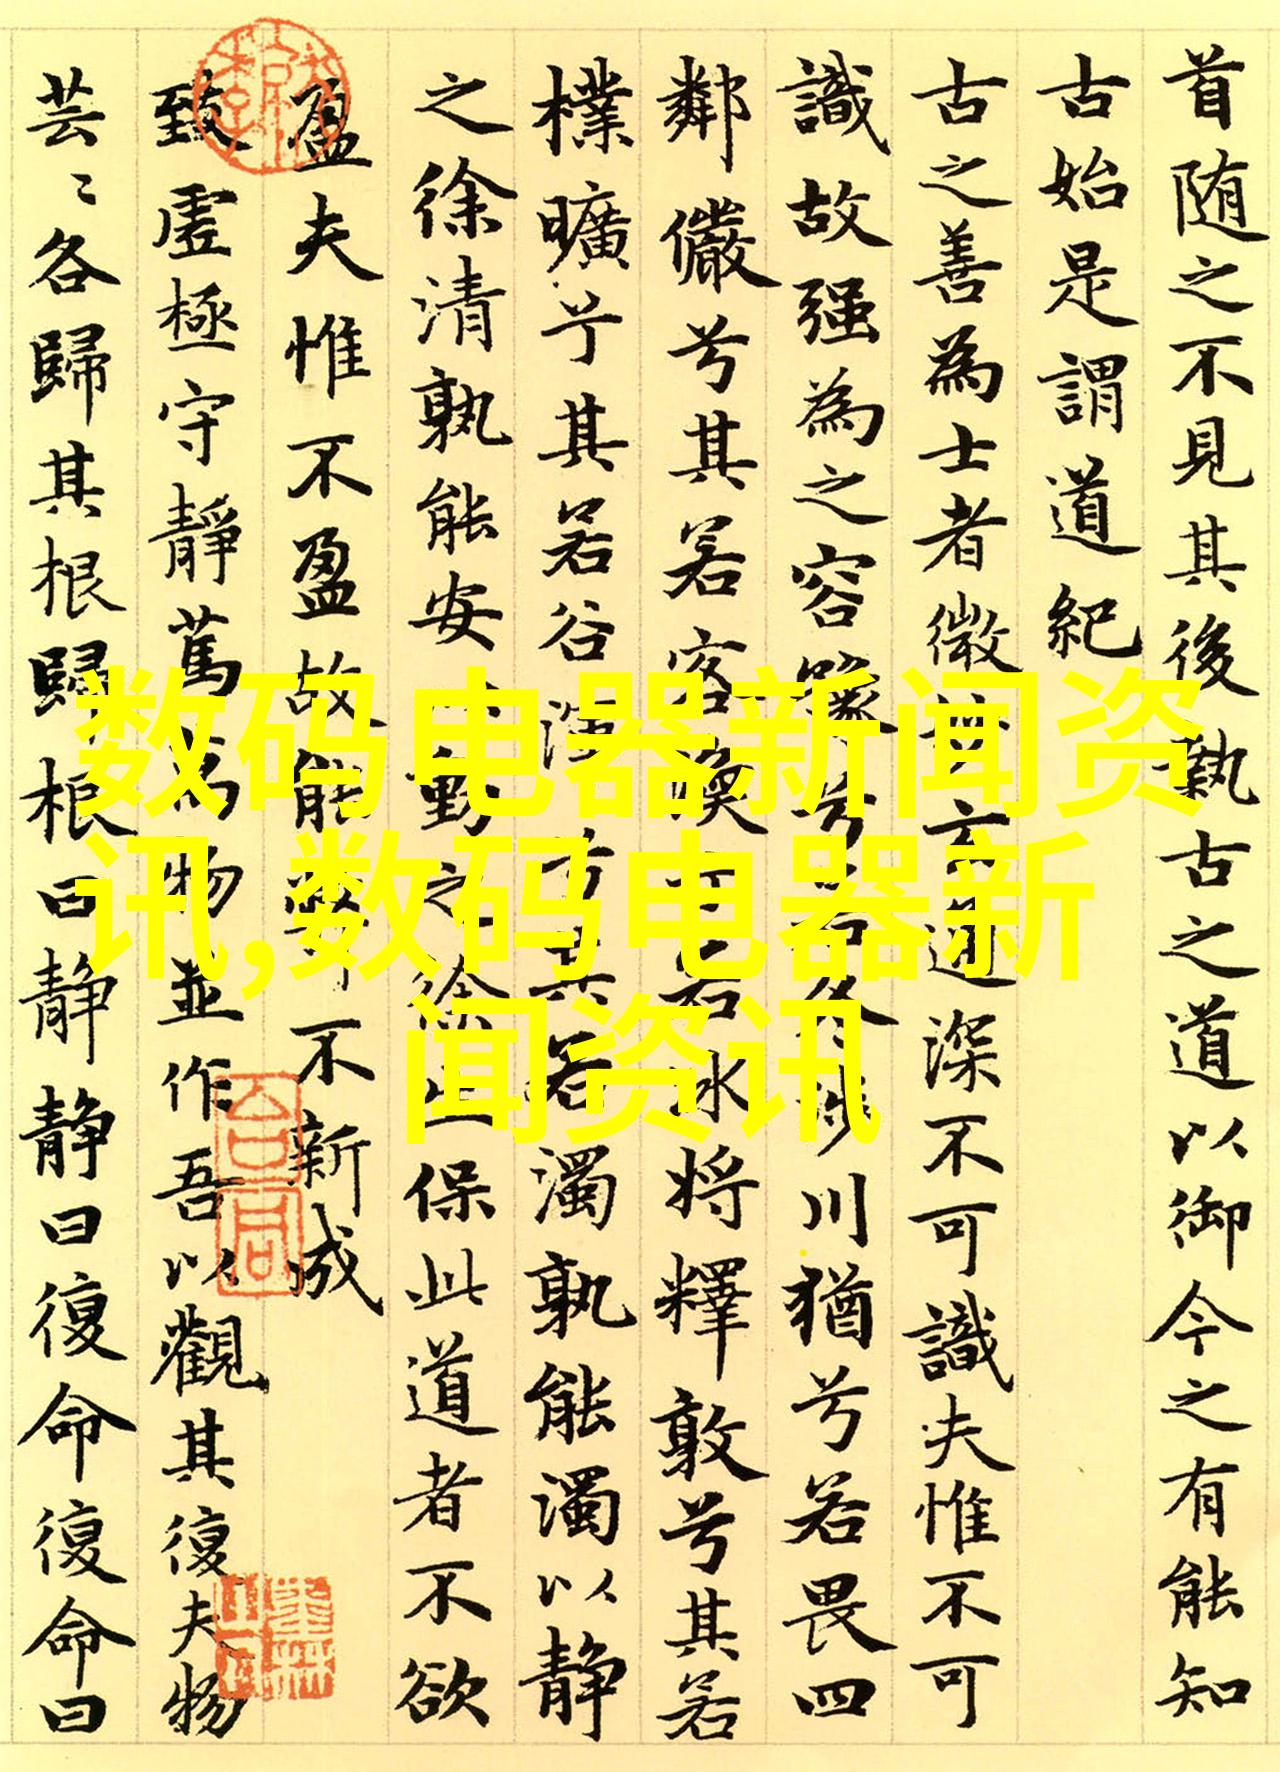 首随之不見其後執古之道以御今之有能知
古始是謂道紀
古之善為士者微玄通深不可識夫惟不可
識故强為之容豫兮若冬涉川猶兮若畏四
鄰儼兮其若客渙若冰將釋敦兮其若
樸曠兮其若谷渾兮其若濁孰能濁以静
之徐清孰能安以動之徐生保此道者不欲
盈夫惟不盈故能敝不新成
致虛極守靜萬物並作吾以觀其復夫物
芸〻各歸其根歸根曰静静曰復命復命曰
数码电器新闻资
讯,数码电器新
闻资讯